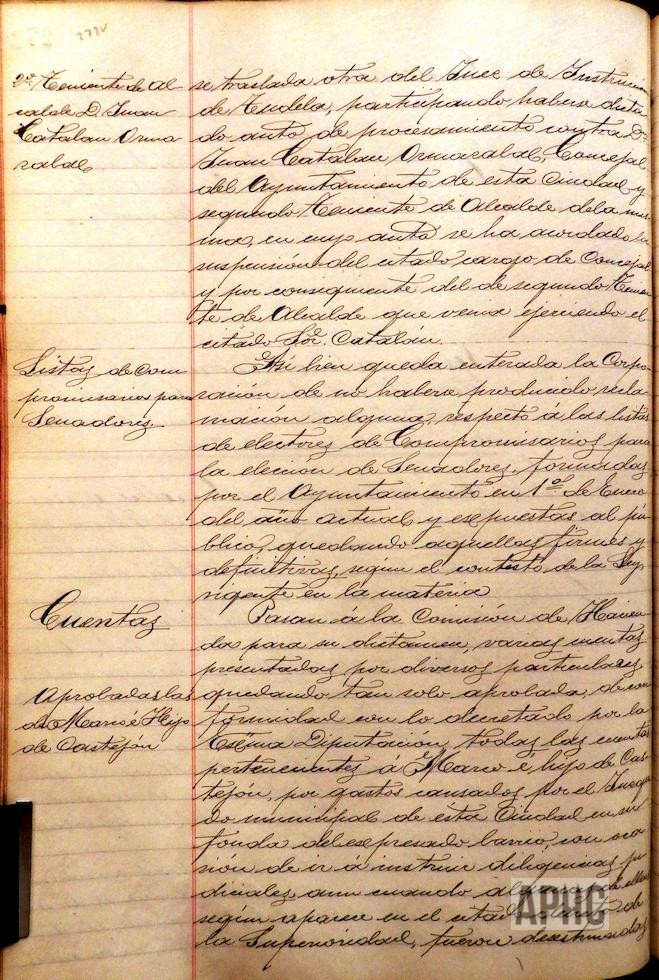 279v
2º Teniente de Al
calde D. Juan
Catalan Orma
zabal
se traslada otra del Juez de Instrucción
de Tudela, participando haberse dicta
do auto de procesamiento contra Dn
Juan Catalan Ormazabal, Concejal
del Ayuntamiento de esta Ciudad y
segundo Teniente de Alcalde de la mis
ma, en cuyo auto se ha acordado la
suspensión del citado cargo de Concejal
y por consiguiente del de segundo Tenien
te de Alcalde que venia ejerciendo el
citado Sor. Catalán.
Listas de Com
promisarios para
Senadores
Asi bien queda enterada la Corpo
ración de no haberse producido recla
mación alguna, respecto á las listas
de electores de Compromisarios para
la elección de Senadores, formadas
por el Ayuntamiento en 1º de Enero
del año actual y expuestas al pú
blico, quedando aquellas firmes y
definitivas, según el contesto de la Ley
vigente en la materia
Cuentas
Pasan á la Comisión de Hacien
da para su dictamen, varias cuentas
presentadas por diversos particulares,
Aprobadas las
de Marco é Hijo
de Castejón
quedando tan solo aprobada, de con
formidad con lo decretado por la
Exema Diputación, todas las cuentas
pertenecientes á Marco é hijo de Cas
tejón, por gastos causados por el Juzga
do municipal de esta Ciudad en su
fonda del expresado barrio, con oca
sión de ir á instruir diligencias ju
diciales, aun cuando algunas de ellas
según aparece en el citado de
la Superioridad, fueron desestimadas
APHC